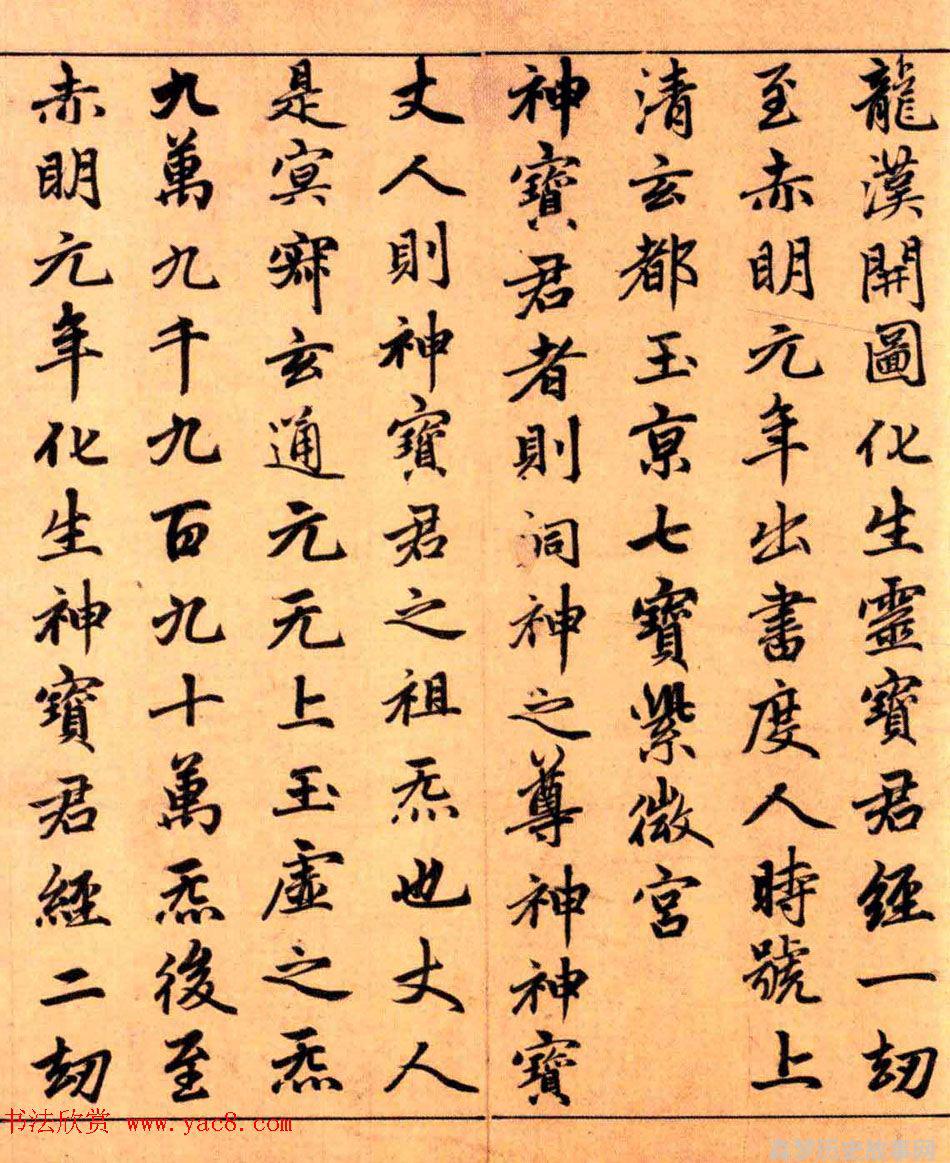 龍漢開圖化生靈寶君經一劫
至赤明元年出書度人時號上
清玄都玉京七寶紫微宮
神寶君者則詞神之尊神神寶
丈人則神寶君之祖炁也丈人
是冥寂玄通元无上玉虛之炁
九萬九千九百九十萬炁後至
赤明元年化生神寶君經二劫
书法欣赏 www.yac8.com